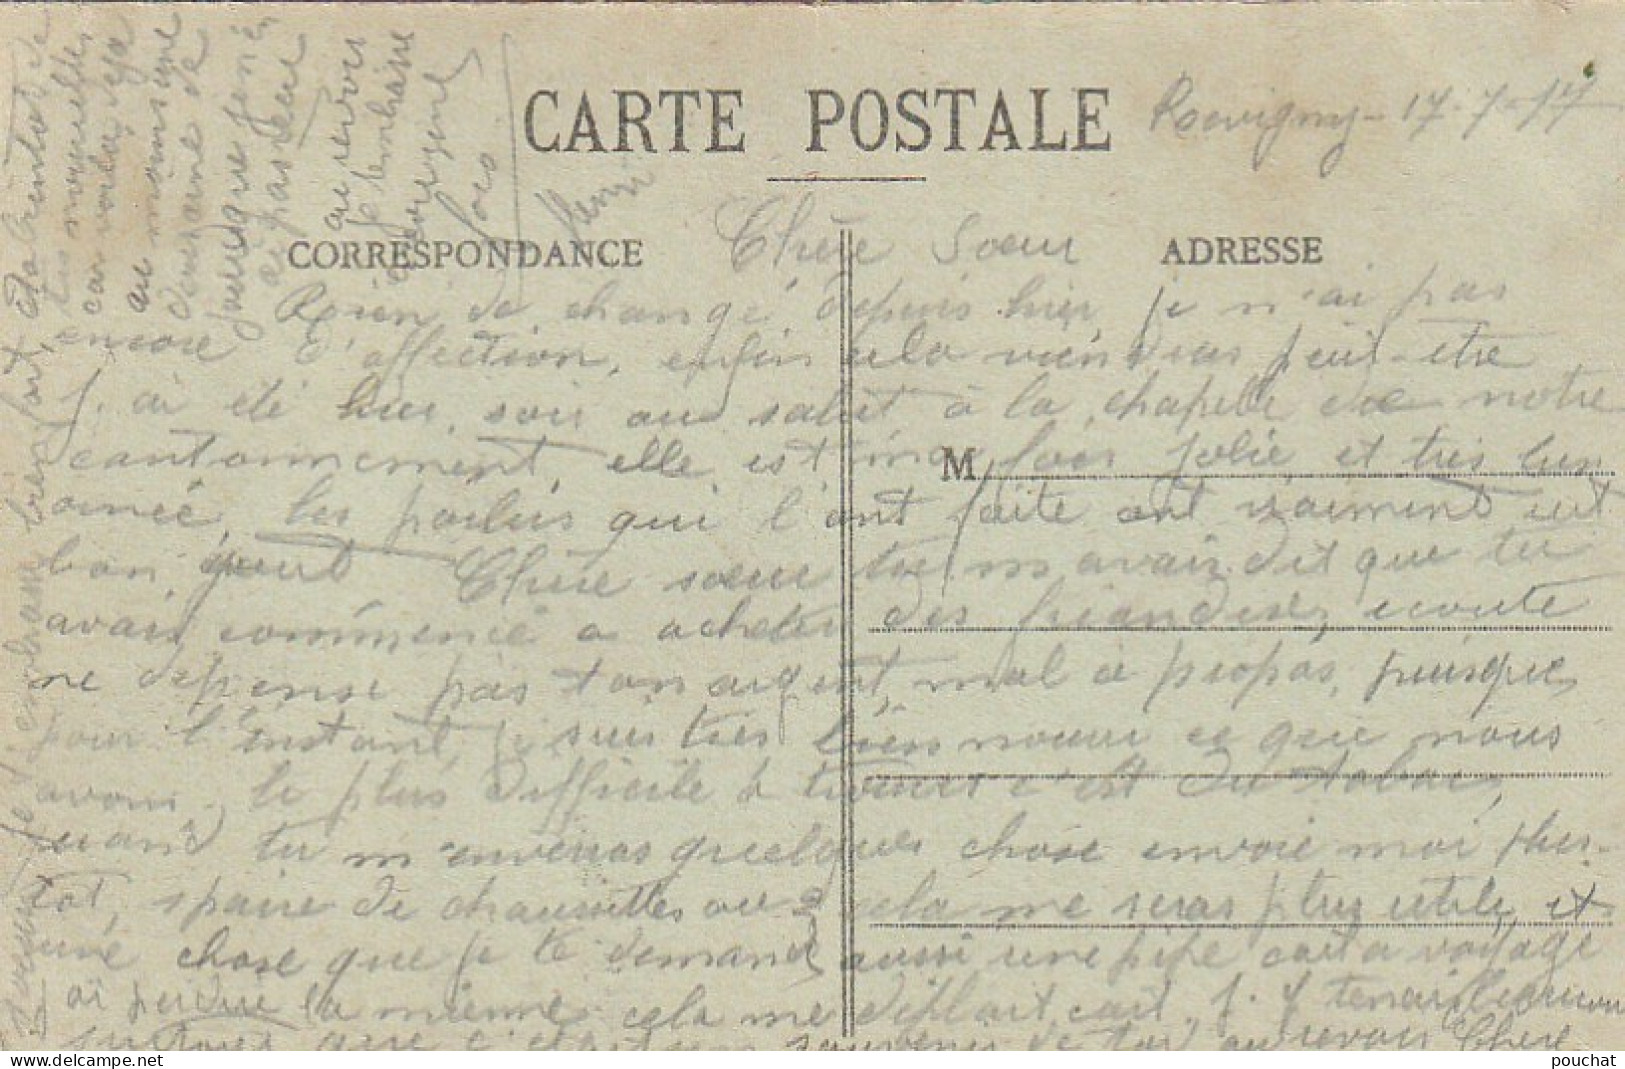 CARTE POSTALE
Revigny - 17-7-17
CORRESPONDANCE
ADRESSE
M
Chère Soeur
Rien de changé depuis hier, je n'ai pas
encore d'affection, enfin cela viendras peut-etre
J'ai été hier soir au salut à la chapelle de notre
cantonnement, elle est ma fois jolie et très bien
ornée, les poilus qui l'ont faite ont vraiment eut
bon gout Chère soeur tu m'avais dit que tu
avais commencé a acheter des friandises, ecoute
ne depense pas ton argent mal à propos, puisque
pour l'instant je suis très bien nourri ce que nous
avons le plus difficile à trouver c'est du tabac,
quand tu m'enverras quelques chose envoie moi plus-
tot, 1 paire de chaussettes ou 2 cela me seras plus utile, et
une chose que je te demande aussi une pipe car a voyage
ai perdue la mienne cela me déplait car j'y tenais beaucoup
surtout que c'était un souvenir de toi au revoir Chère
soeur je t'embrasse bien fort,
les nouvelles
car voilà
au moins une
douzaine de
jours que je n'ai
ai pas reçu
au revoir
je t'embrasse
encore une
fois
Henri
pouchat